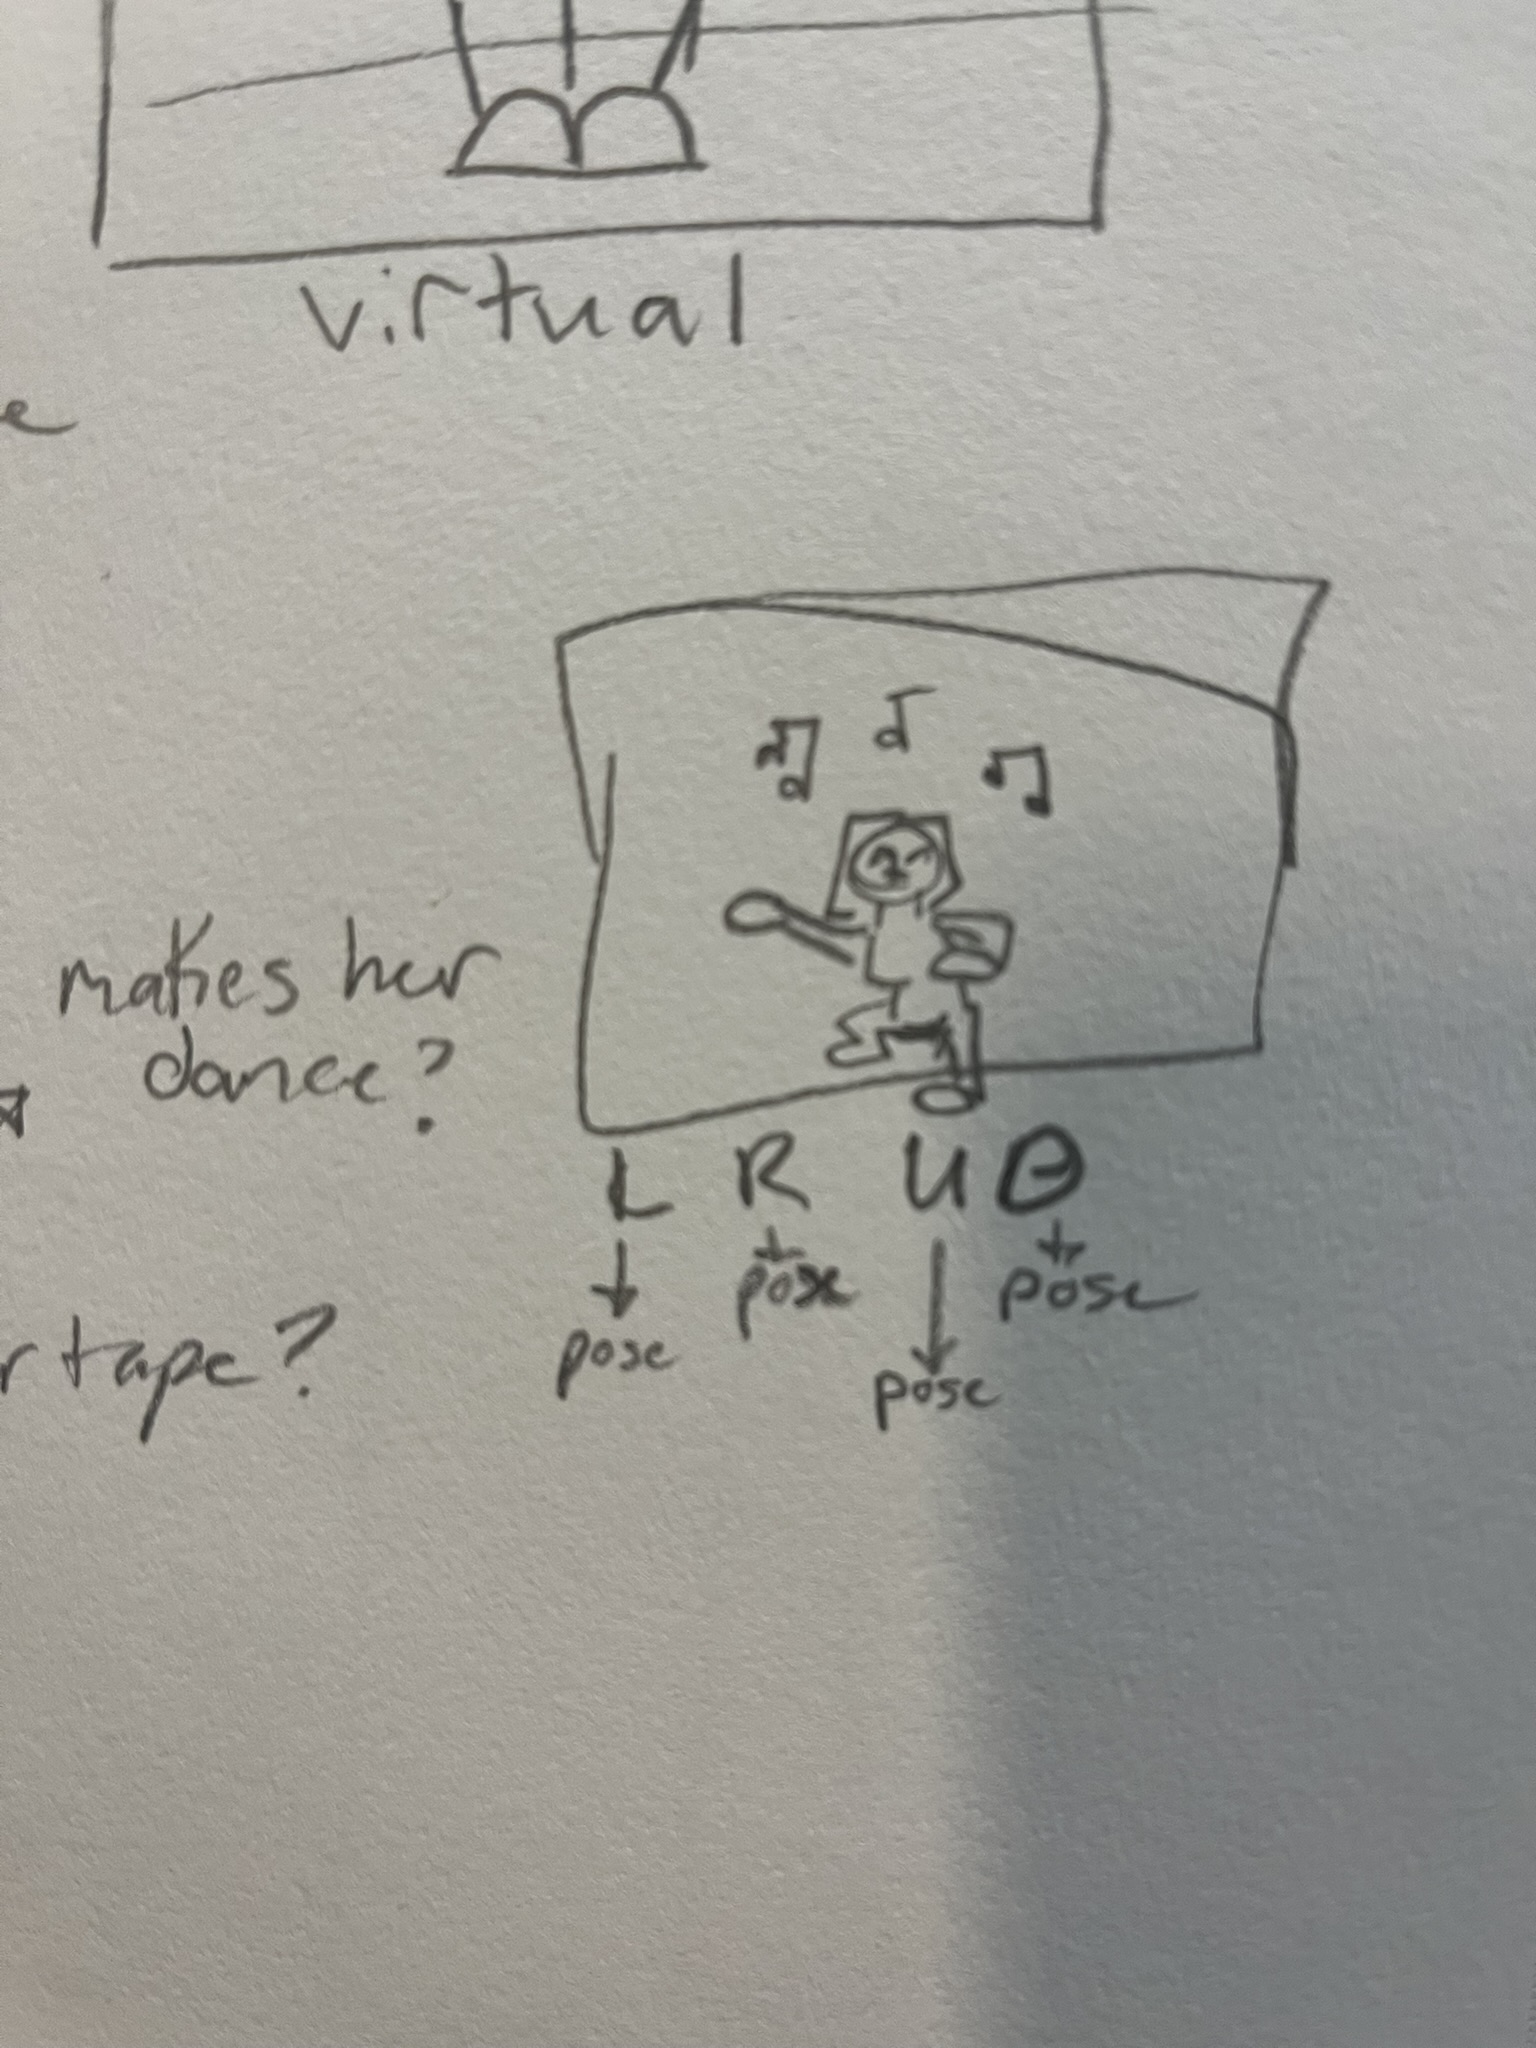 virtual
e
makes her
dance?
L R U D
pose pose
pose pose
r tape?